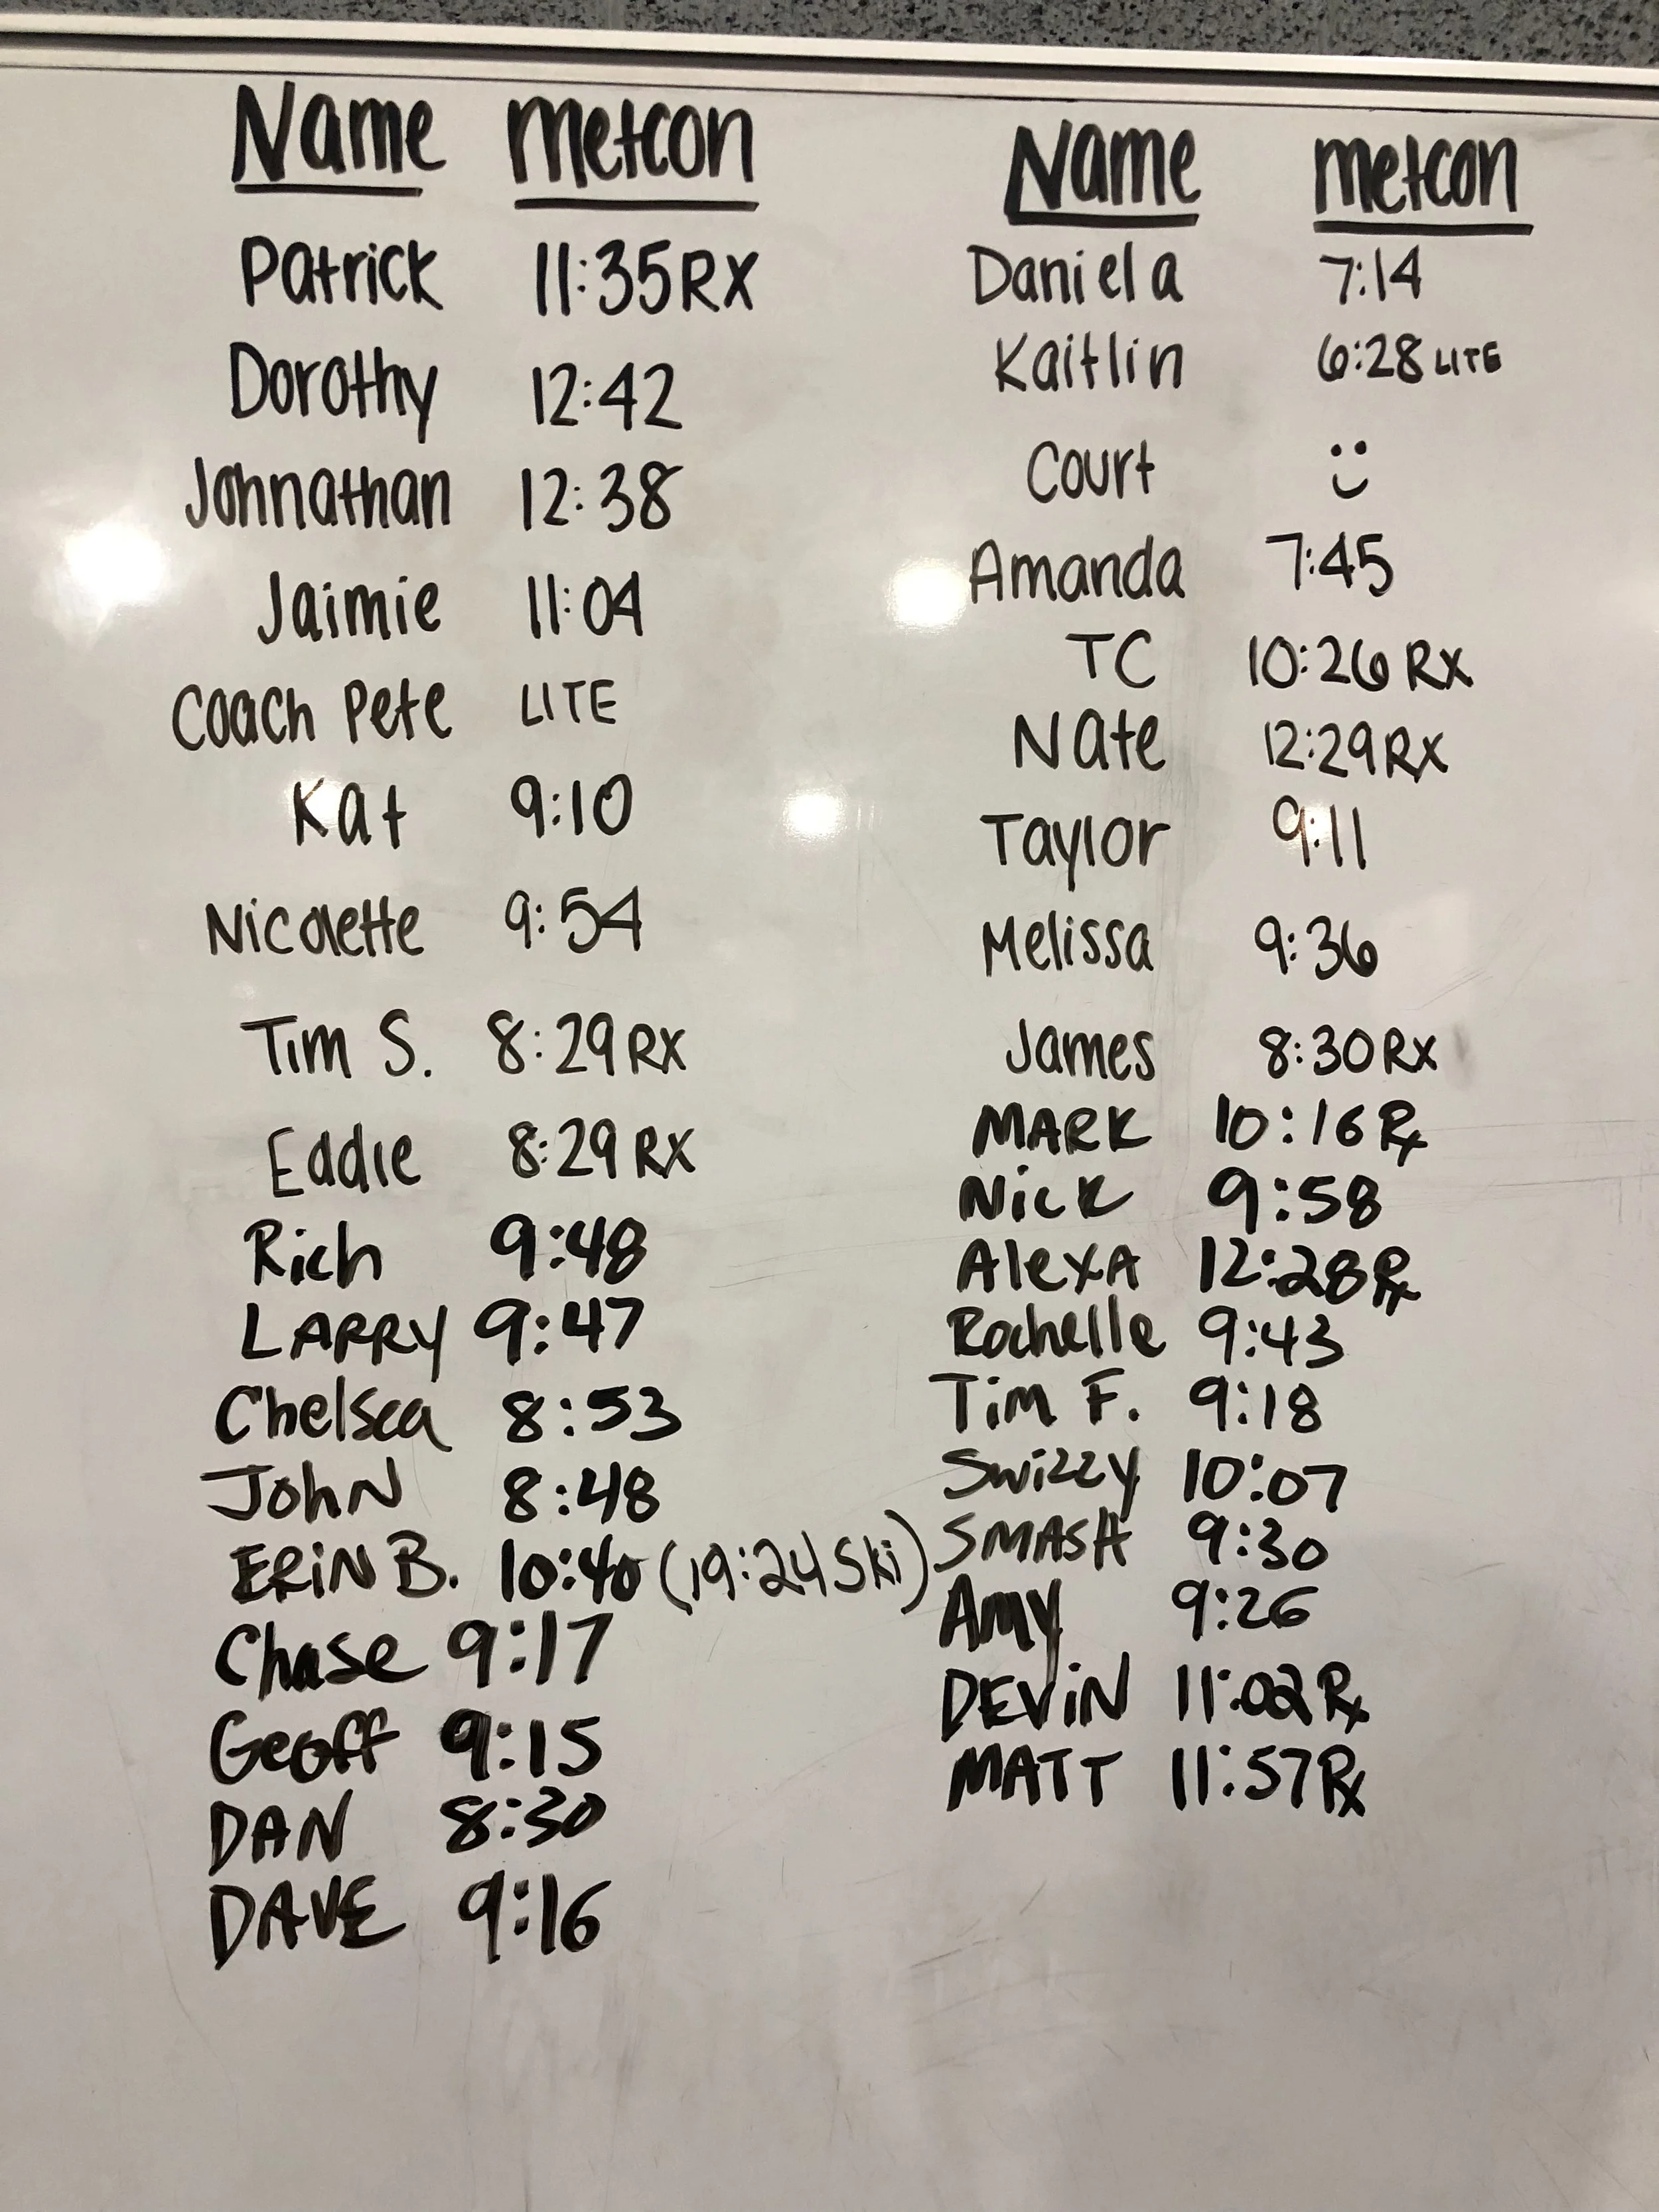 Name Metcon
Patrick 11:35 RX
Dorothy 12:42
Johnathan 12:38
Jaimie 11:04
Coach Pete LITE
Kat 9:10
Nicolette 9:54
Tim S. 8:29 RX
Eddie 8:29 RX
Rich 9:48
LARRY 9:47
Chelsea 8:53
John 8:48
ERiN B. 10:40 (19:24 Ski)
Chase 9:17
Geoff 9:15
DAN 8:30
DAVE 9:16
Name metcon
Daniela 7:14
Kaitlin 6:28 LITE
Court
Amanda 7:45
TC 10:26 RX
Nate 12:29 RX
Taylor 9:11
Melissa 9:36
James 8:30 RX
MARK 10:16 Rx
Nick 9:58
AlexA 12:28 Rx
Rochelle 9:43
Tim F. 9:18
Swizzy 10:07
SMASH 9:30
Amy 9:26
DEViN 11:02 Rx
MATT 11:57 Rx